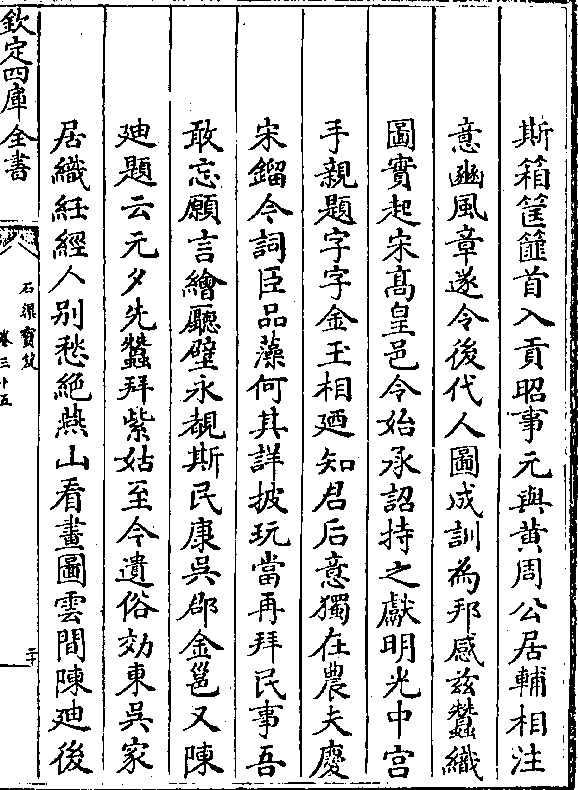 斯箱筐篚首入貢昭事元與黄周公居輔相注
意豳風章遂令後代人圖成訓為邦感兹蠶織
圖實起宋髙皇邑令始承詔持之獻明光中宫
手親題字字金玉相廼知君后意獨在農夫慶
宋鎦今詞臣品藻何其詳披玩當再拜民事吾
敢忘願言繪廳壁永覩斯民康吳郡金邕又陳
廸題云元夕先蠶拜紫姑至今遺俗効東吳家
居織紝經人别愁絶燕山看畫圖雲間陳廸後
欽定四庫全書
石渠寶笈
卷三十五
二十